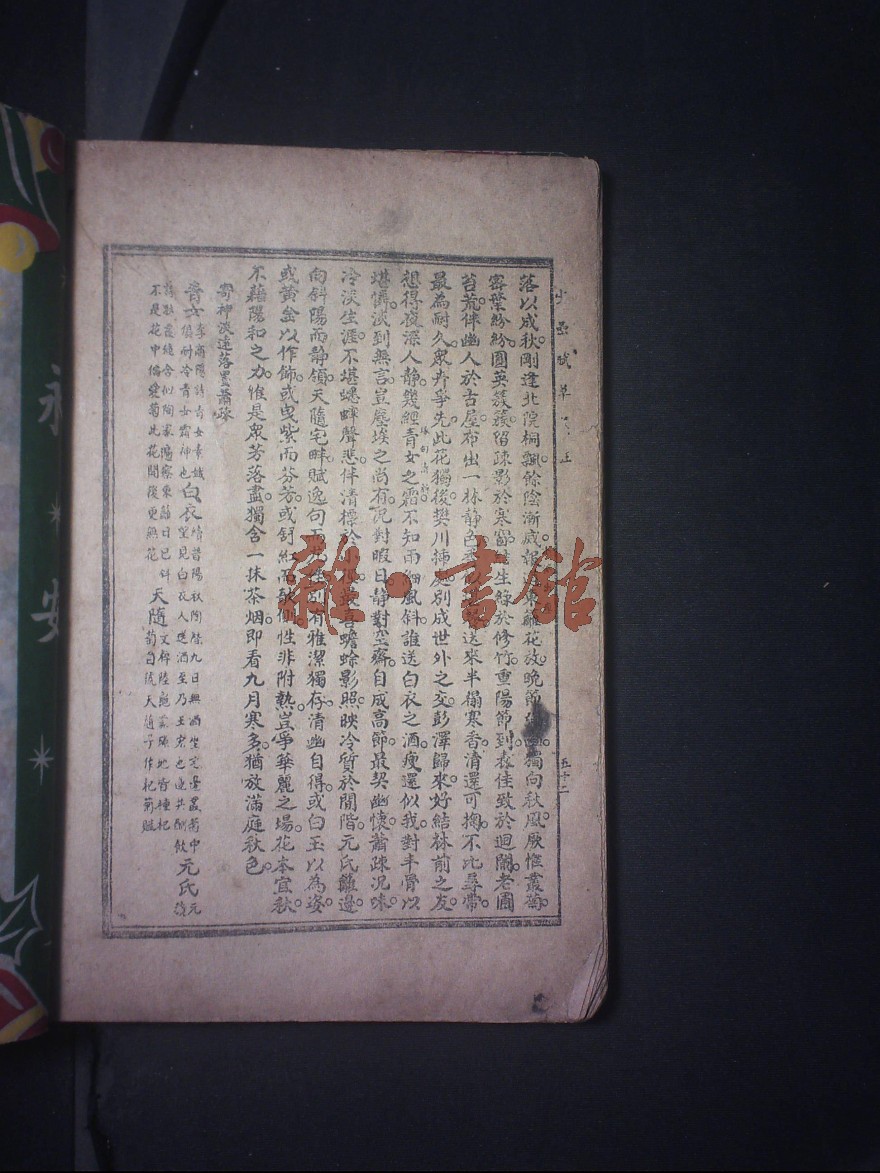 落以成秋。剛逢北院桐飄。餘陰漸減。報籬花放。晚節獨向秋風。厥惟叢菊。
密葉紛紛。圓英簇簇。留疎影於寒窗。生綠於修竹。重陽節到。森佳致於迴闌。老圃
苔荒。伴幽人於古屋。布出一林靜色。送來半榻寒香。清還可掬。不比尋常。
最為耐久。眾卉爭先。此花獨後。樊川插處。別成世外之交。彭澤歸來。好結林前之友。
想得夜深人靜。幾經青女之霜。不知雨細風斜。誰送白衣之酒。瘦還似我。對丰骨以
堪憐。淡到無言。豈塵埃之尚有。況對暇日。靜對空齋。自成高節。最契幽懷。蕭疎況味。
冷淡生涯。不堪蟋蟀聲悲。伴清標於。最蟾蜍影照。映冷質於閒階。元氏籬邊。
向斜陽而靜領。天隨宅畔。賦逸句而別有雅潔獨存。清幽自得。或白玉以為姿。
或黃金以作飾。或曳紫而芬芳。或舒紅而側。性非附熱。豈爭華麗之場。花本宜秋。
不藉陽和之力。惟是眾芳落盡。獨含一抹茶烟。即看九月寒多。猶放滿庭秋色。
寄神淡遠落墨蕭疎
青女 李商隱詩青女素娥俱耐冷青女霜神也 白衣 續晉陽秋陶潛九日無酒坐宅邊叢菊中望見白衣人送酒至乃王宏也遂共酣飲 元氏 元
詩秋叢繞舍似陶家遍繞東籬日已斜不是花中偏愛菊此花開後更無花 天隨 菊自號天隨子作杞菊賦
五十二
永安
雜·書館